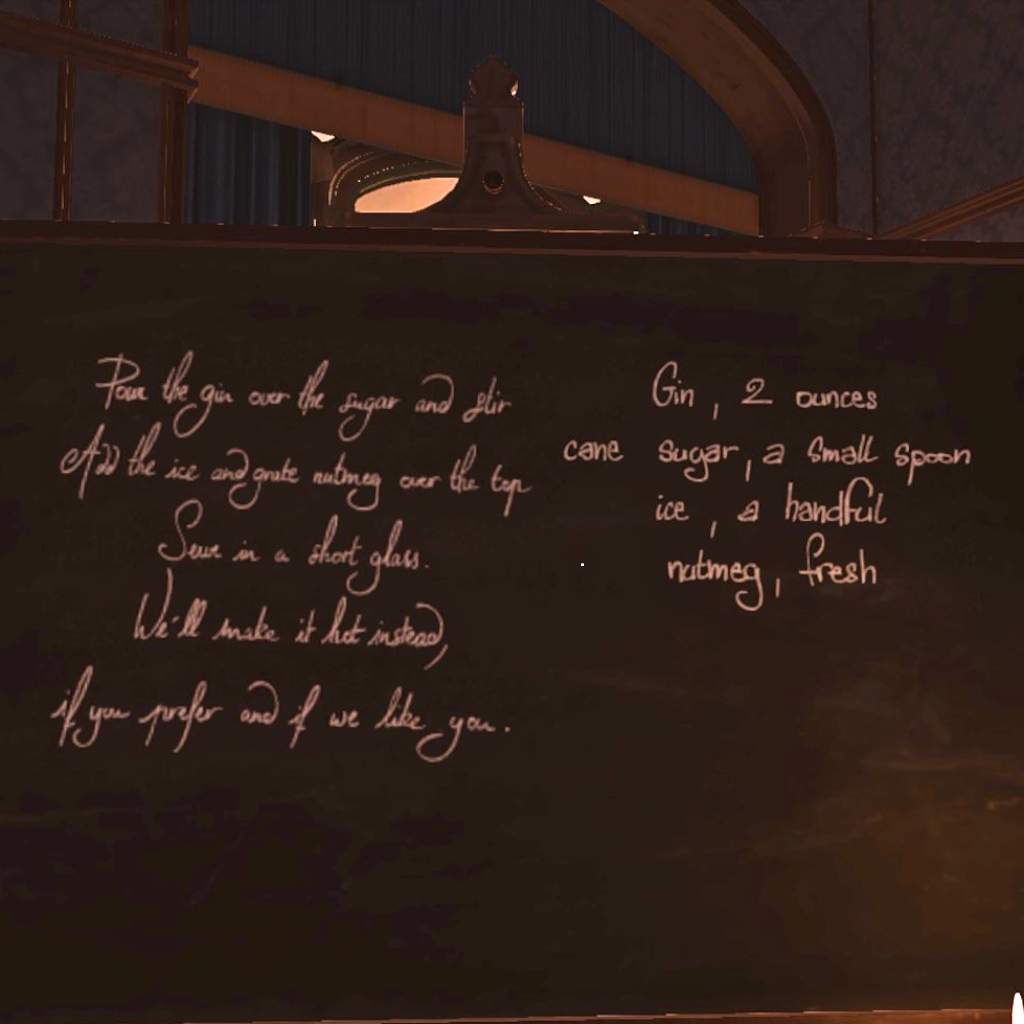 Pour the gin over the sugar and stir
Add the ice and grate nutmeg over the top
Serve in a short glass.
We'll make it hot instead,
if you prefer and if we like you.
Gin, 2 ounces
cane sugar, a small spoon
ice, a handful
nutmeg, fresh